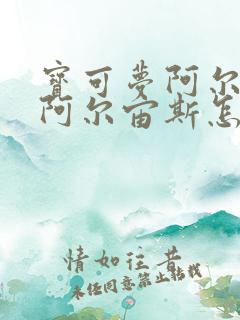 寶可夢阿尔
阿尔宙斯怎
情如往昔
未经同意禁止转载